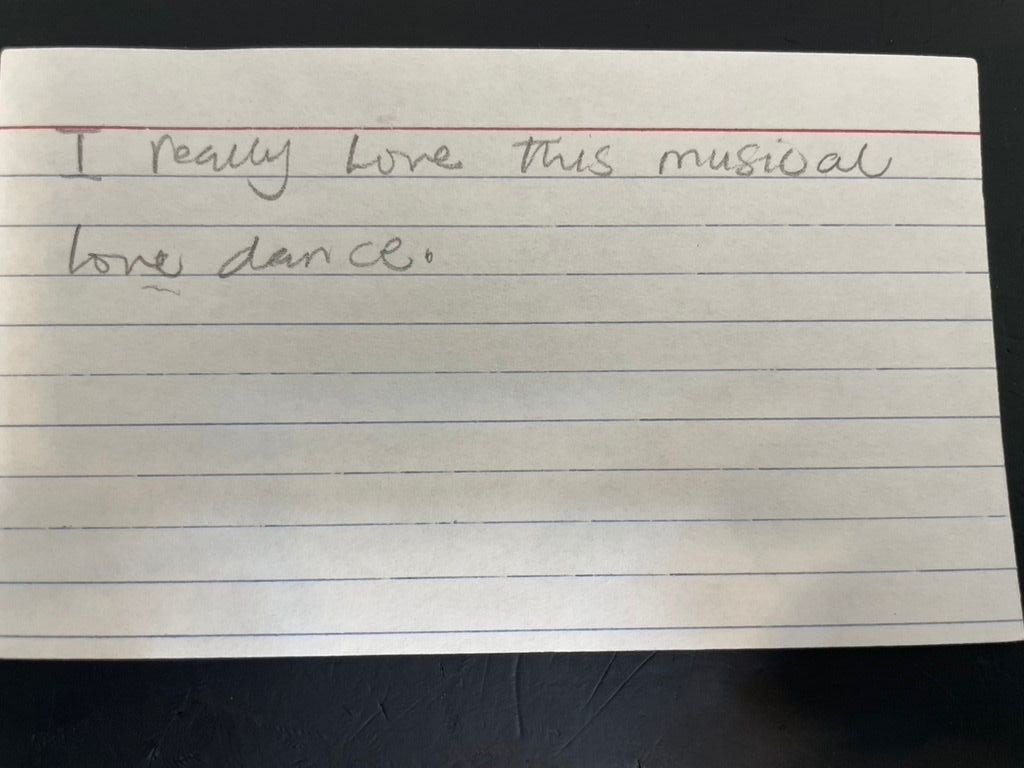 I really Love this musical
love dance.